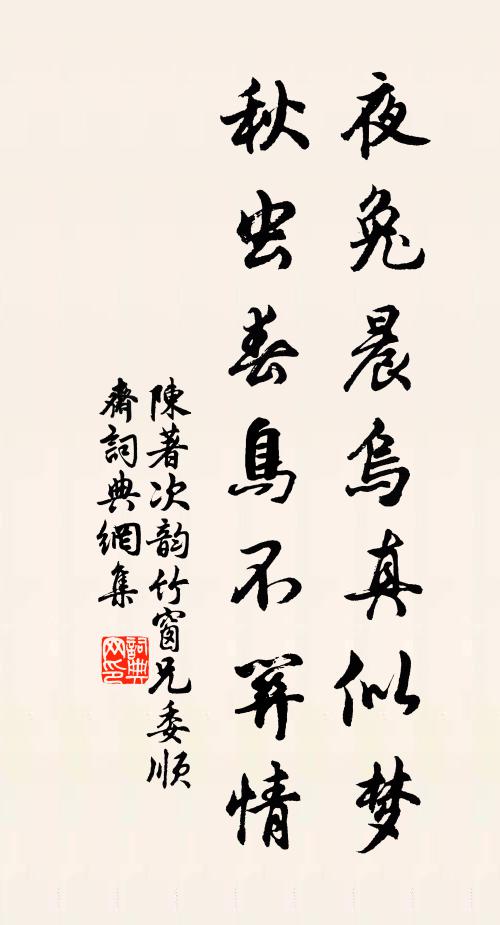 夜兔晨烏真似梦
秋虫春鳥不關情
陳著次韵竹窗兄委順
齋詞典網集
詞典网印